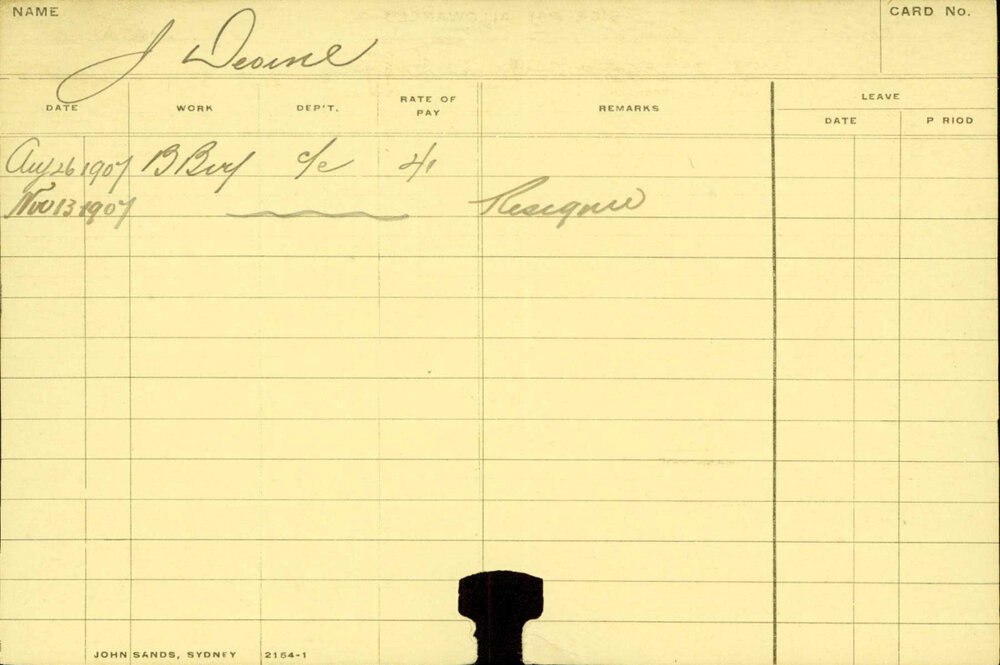 NAME
J Devine
CARD No.
DATE WORK DEP'T. RATE OF PAY REMARKS LEAVE
DATE P RIOD
Aug 26 1907 B Boy c/e 4/-
Nov 13 1907 Resigned
JOHN SANDS, SYDNEY 2154-1